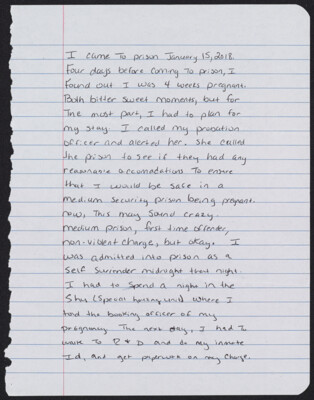 I came To prison January 15, 2018.
Four days before coming To prison, I
found out I was 4 weeks pregnant.
Both bitter sweet moments, but for
The most part, I had to plan for
my stay. I called my probation
officer and alerted her. She called
the prison to see if they had any
reasonable accomodations To ensure
that I would be safe in a
medium security prison being pregnant.
now, This may sound crazy.
medium prison, first time offender,
non-violent charge, but okay. I
was admitted into prison as a
self surrender midnight that night.
I had to spend a night in the
Shu (Special housing unit) where I
told the booking officer of my
pregnancy. The next day, I had To
walk To R & D and do my inmate
Id, and get paperwork on my charge.